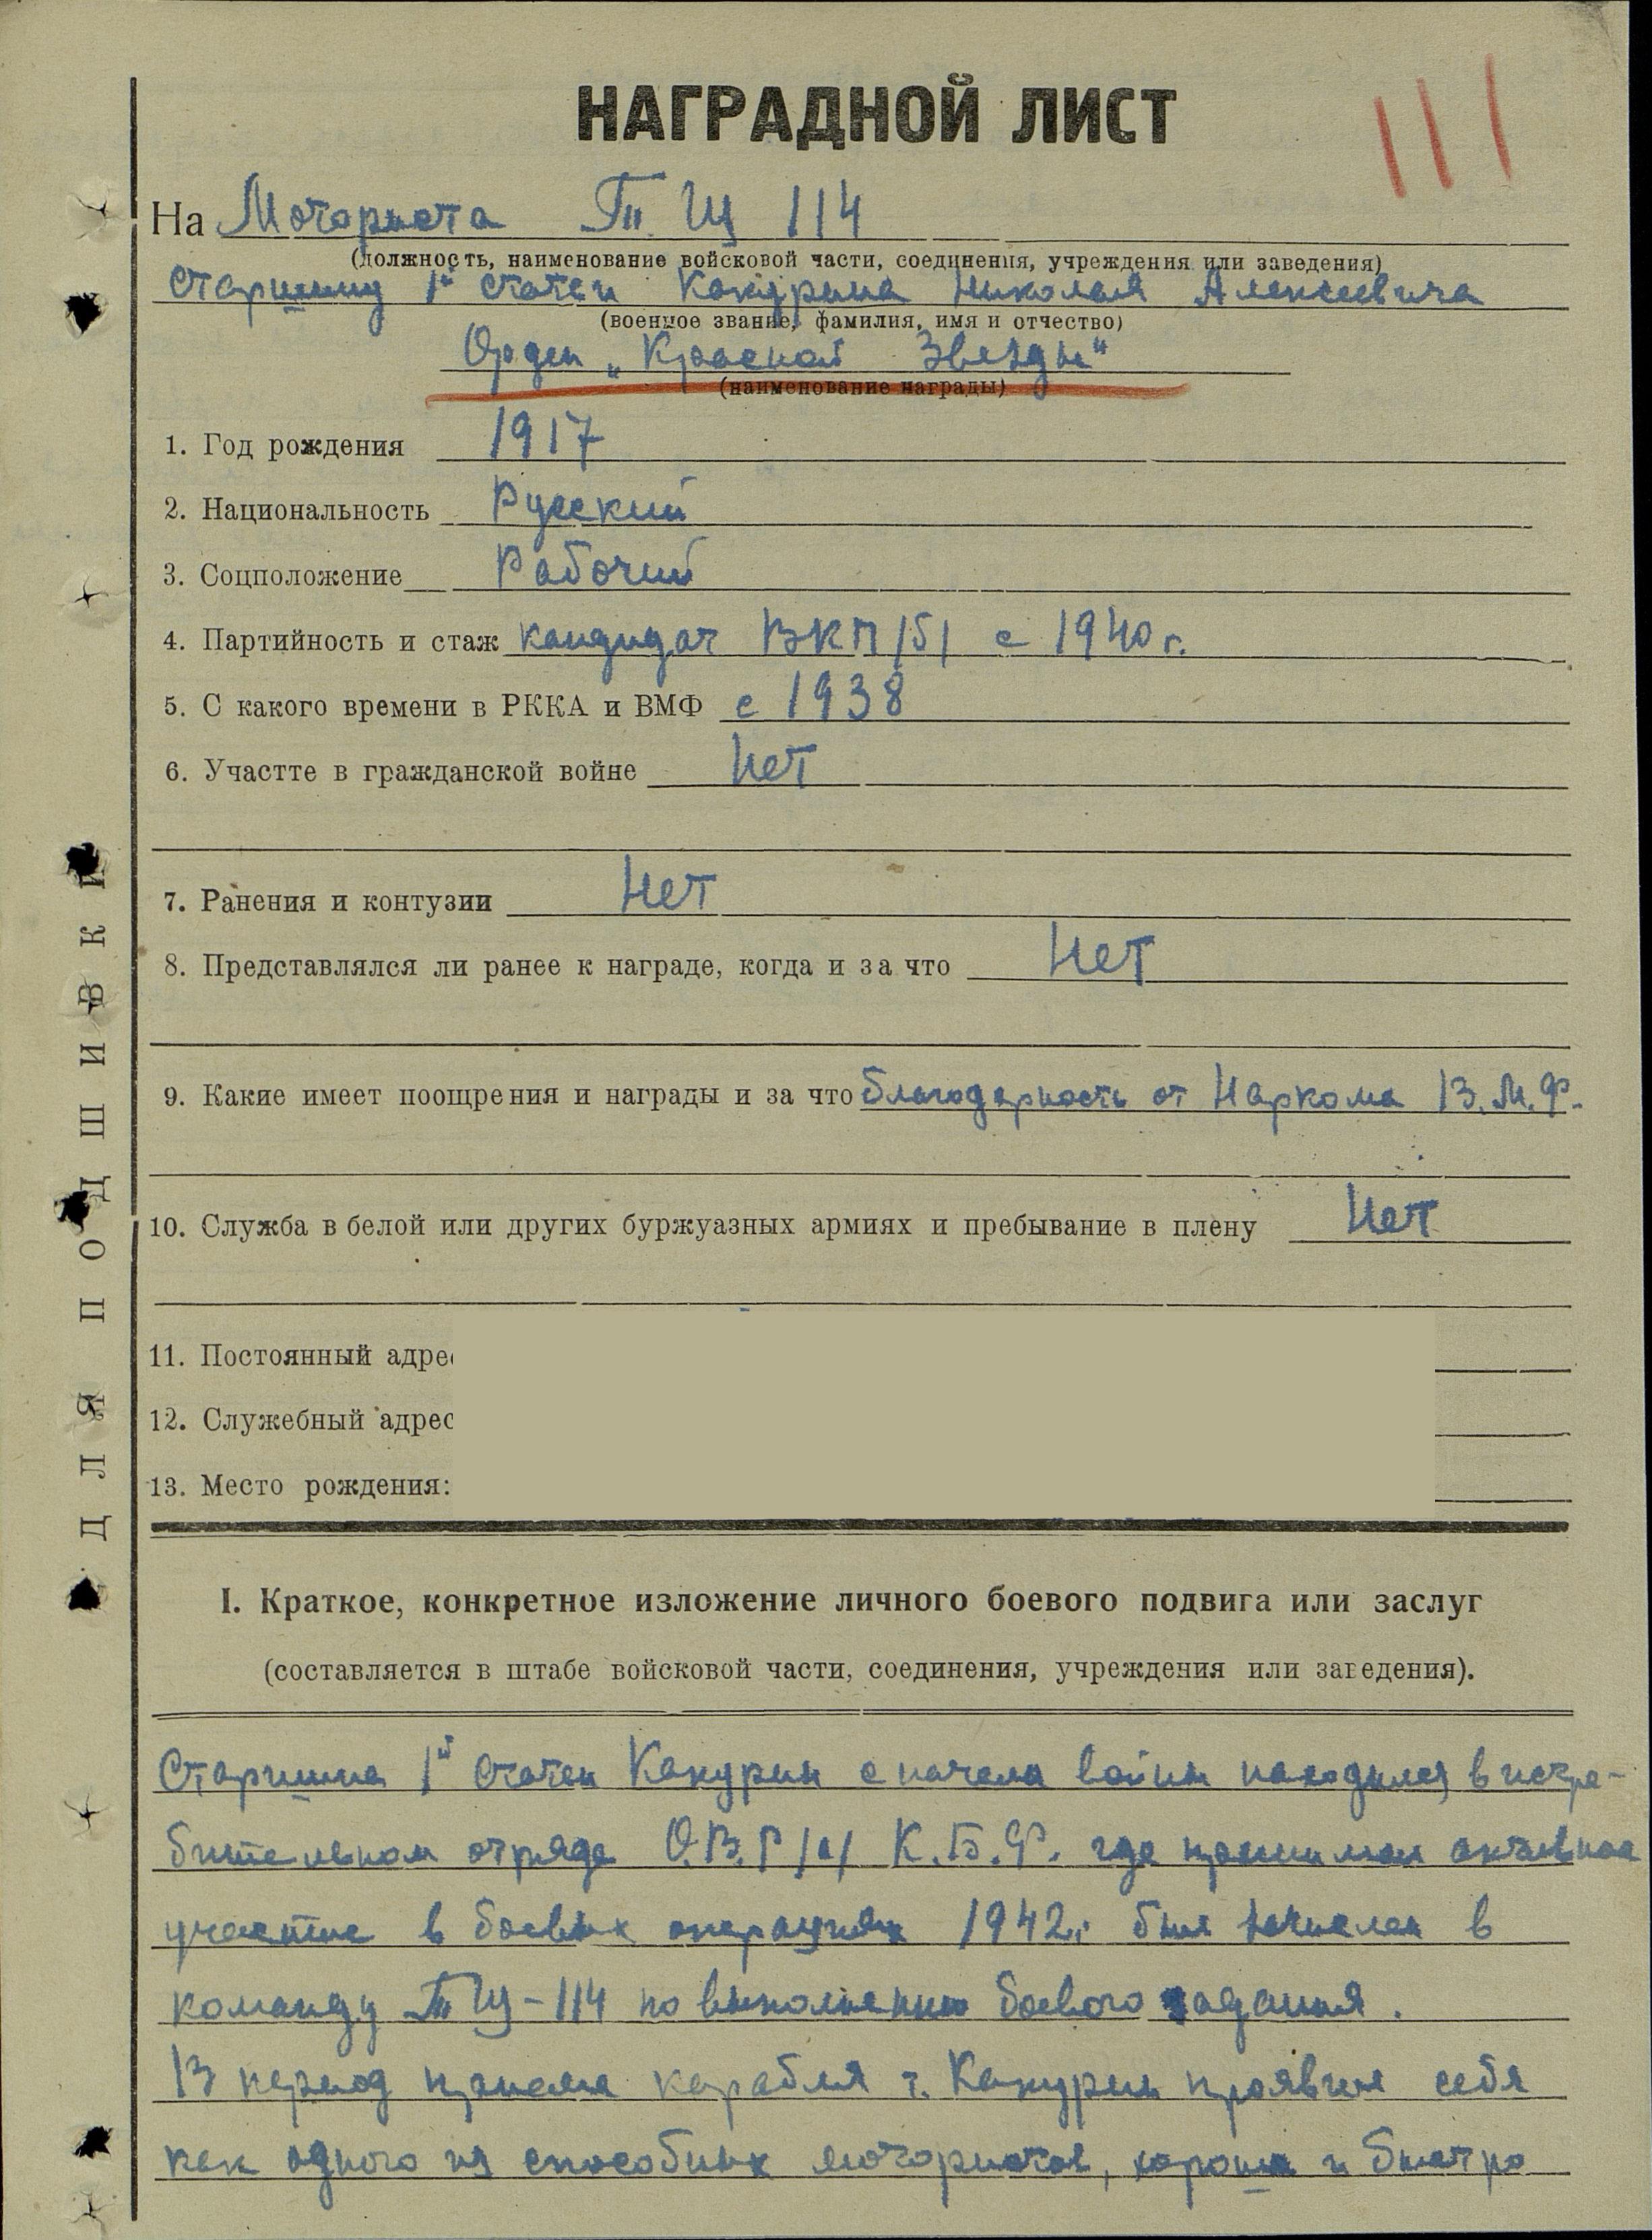 НАГРАДНОЙ ЛИСТ
На Моториста ТЩ 114
(должность, наименование войсковой части, соединения, учреждения или заведения)
Старшину 1й статьи Кокурина Николая Алексеевича
(военное звание, фамилия, имя и отчество)
Орден „Красной Звезды"
(наименование награды)
1. Год рождения 1917
2. Национальность Русский
3. Соцположение Рабочий
4. Партийность и стаж кандидат ВКП/б/ с 1940 г.
5. С какого времени в РККА и ВМФ с 1938
6. Участте в гражданской войне Нет
7. Ранения и контузии Нет
8. Представлялся ли ранее к награде, когда и за что Нет
9. Какие имеет поощрения и награды и за что благодарность от Наркома В.М.Ф.
10. Служба в белой или других буржуазных армиях и пребывание в плену Нет
11. Постоянный адрес
12. Служебный адрес
13. Место рождения:
ДЛЯ ПОДШИВКИ
I. Краткое, конкретное изложение личного боевого подвига или заслуг
(составляется в штабе войсковой части, соединения, учреждения или заведения).
Старшина 1й статьи Кокурин с начала войны находился в истре-
бительном отряде О.В.Р /а/ К.Б.Ф. где принимал активное
участие в боевых операциях 1942г. был зачислен в
команду ТЩ-114 по выполнению боевого задания.
В период приема карабля т. Кокурин проявил себя
как одного из способных мотористов, хорошо и быстро